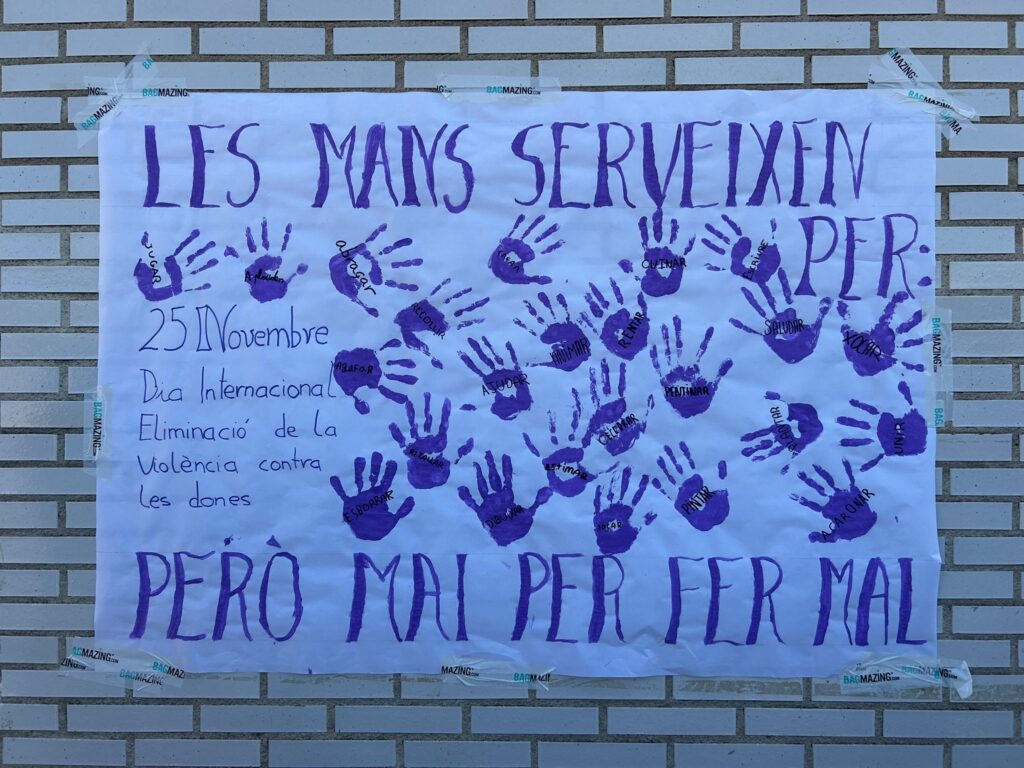 LES MANS SERVEIXEN
PER:
JUGAR
Aplaudir
abraçar
CUINAR
ESCRIURE
RECOLLIR
ANIMAR
RENTAR
SALUDAR
XOCAR
25 Novembre
AGAFAR
AJUDAR
PENTINAR
Dia Internacional
Eliminació de la
Violència contra
les dones
CELEBRAR
UNIR
REGALAR
estimar
ESBORRAR
DIBUIXAR
TOCAR
PINTAR
ACARONAR
PERÒ MAI PER FER MAL
BAGMAZING.COM
BAGMAZING
BAGMAZING
BAGMAZING
BAGMAZING
BAGMAZING
MAZING.COM
BAGMAZING